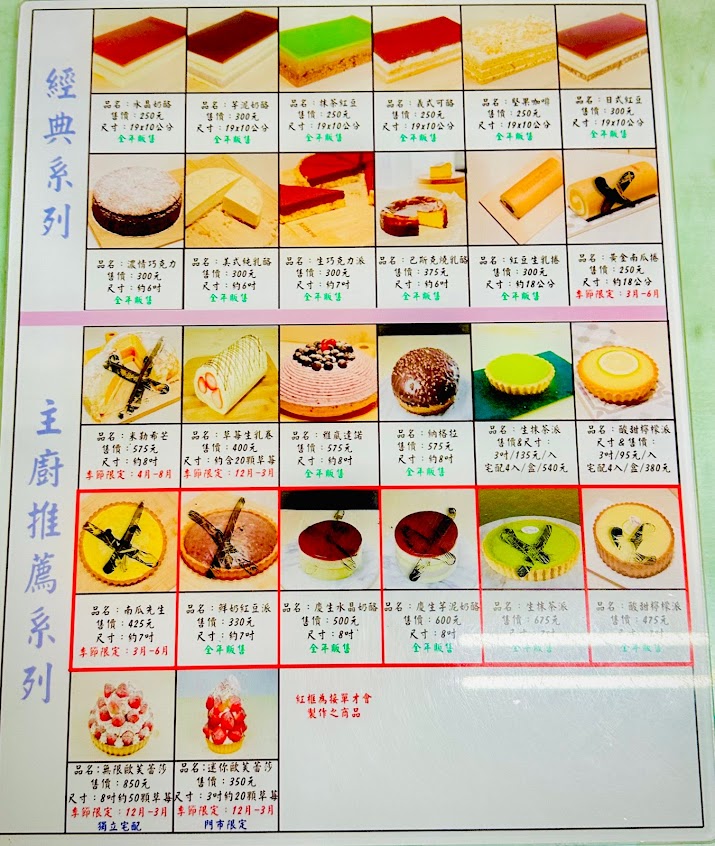 經典系列
品名：水晶奶酪
售價：250元
尺寸：19x10公分
全年販售
品名：芋泥奶酪
售價：300元
尺寸：19x10公分
全年販售
品名：抹茶紅豆
售價：250元
尺寸：19x10公分
全年販售
品名：義式可酪
售價：250元
尺寸：19x10公分
全年販售
品名：堅果咖啡
售價：250元
尺寸：19x10公分
全年販售
品名：日式紅豆
售價：300元
尺寸：19x10公分
全年販售
品名：濃情巧克力
售價：300元
尺寸：約6吋
全年販售
品名：美式純乳酪
售價：300元
尺寸：約6吋
全年販售
品名：生巧克力派
售價：300元
尺寸：約7吋
全年販售
品名：巴斯克燒乳酪
售價：375元
尺寸：約6吋
全年販售
品名：紅豆生乳捲
售價：300元
尺寸：約18公分
全年販售
品名：黃金南瓜捲
售價：250元
尺寸：約18公分
季節限定：3月-6月
主廚推薦系列
品名：米勒希芒
售價：575元
尺寸：約8吋
季節限定：4月-8月
品名：草莓生乳卷
售價：400元
尺寸：約含20顆草莓
季節限定：12月-3月
品名：雅嵐達諾
售價：575元
尺寸：約8吋
全年販售
品名：納格拉
售價：575元
尺寸：約8吋
全年販售
品名：生抹茶派
售價&尺寸：
3吋/135元/入
宅配4入/盒/540元
品名：酸甜檸檬派
尺寸&售價：
3吋/95元/入
宅配4入/盒/380元
品名：南瓜先生
售價：425元
尺寸：約7吋
季節限定：3月-6月
品名：鮮奶紅豆派
售價：330元
尺寸：約7吋
全年販售
品名：慶生水晶奶酪
售價：500元
尺寸：8吋
全年販售
品名：慶生芋泥奶酪
售價：600元
尺寸：8吋
全年販售
品名：生抹茶派
售價：675元
全年販售
品名：酸甜檸檬派
售價：475元
全年販售
品名：無限歐芙蕾莎
售價：850元
尺寸：8吋約50顆草莓
季節限定：12月-3月
獨立宅配
品名：迷你歐芙蕾莎
售價：350元
尺寸：3吋約20顆草莓
季節限定：12月-3月
門市限定
紅框為接單才會
製作之商品